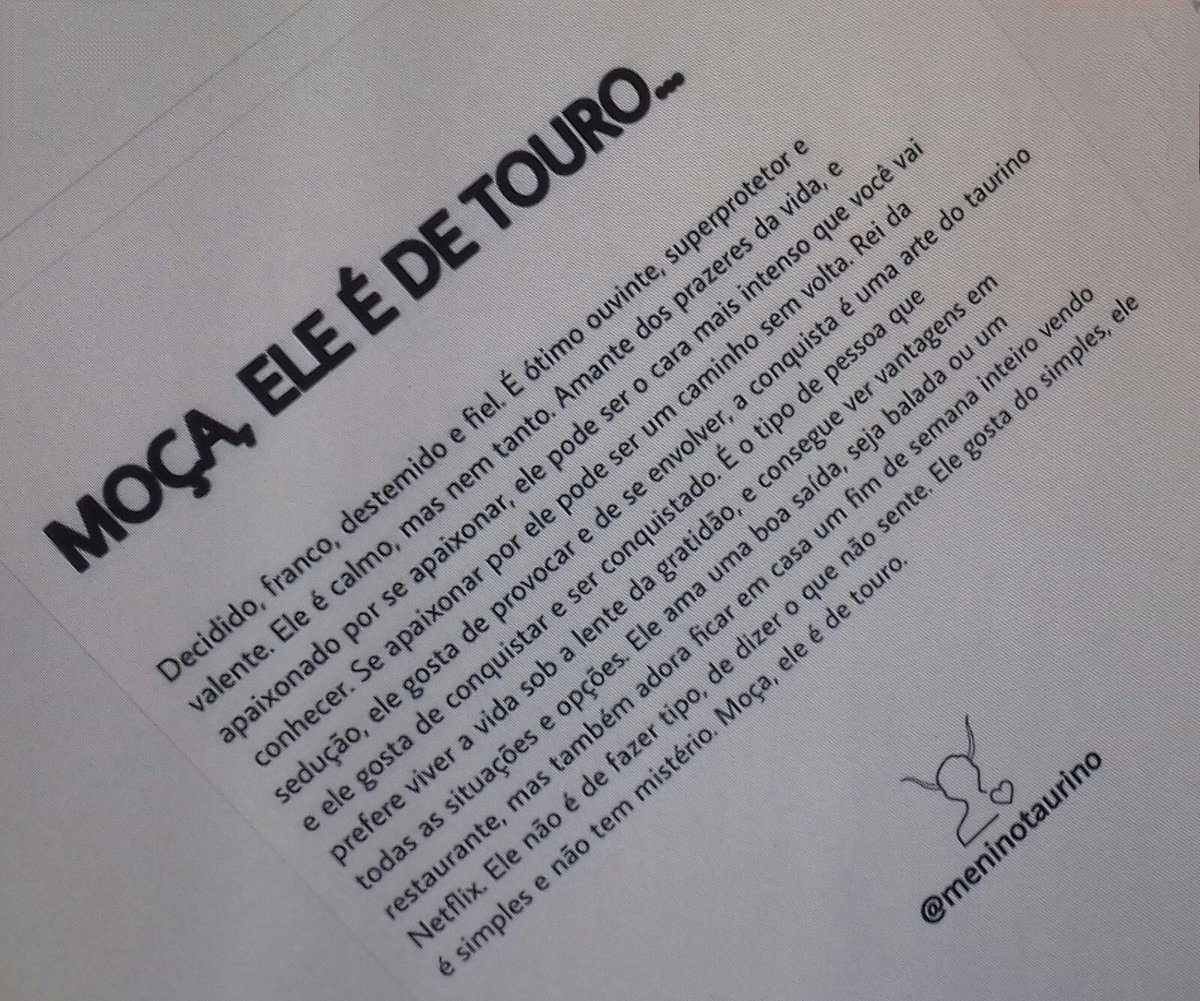 MOÇA, ELE É DE TOURO...
Decidido, franco, destemido e fiel. É ótimo ouvinte, superprotetor e
valente. Ele é calmo, mas nem tanto. Amante dos prazeres da vida, e
apaixonado por se apaixonar, ele pode ser o cara mais intenso que você vai
conhecer. Se apaixonar por ele pode ser um caminho sem volta. Rei da
sedução, ele gosta de provocar e de se envolver, a conquista é uma arte do taurino
e ele gosta de conquistar e ser conquistado. É o tipo de pessoa que
prefere viver a vida sob a lente da gratidão, e consegue ver vantagens em
todas as situações e opções. Ele ama uma boa saída, seja balada ou um
restaurante, mas também adora ficar em casa um fim de semana inteiro vendo
Netflix. Ele não é de fazer tipo, de dizer o que não sente. Ele gosta do simples, ele
é simples e não tem mistério. Moça, ele é de touro.
@meninotaurino